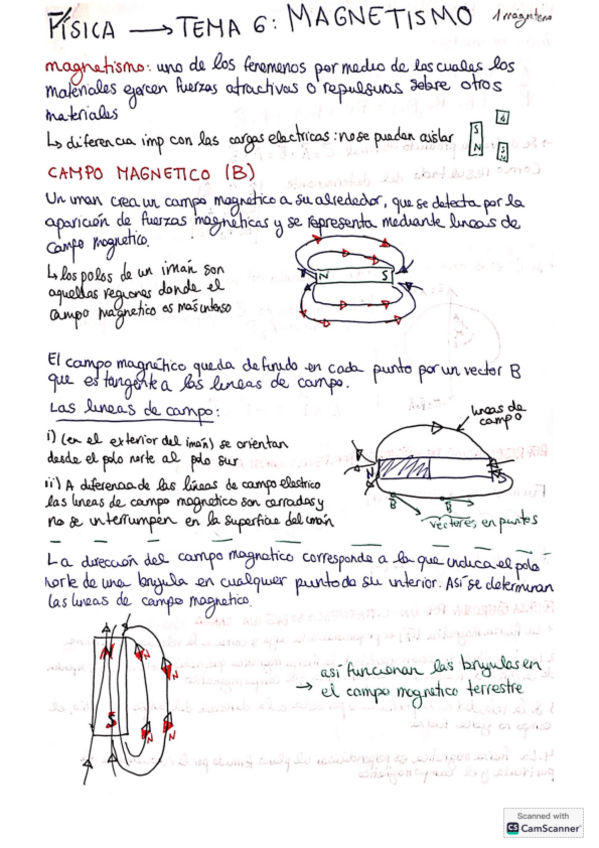 FÍSICA → TEMA 6: MAGNETISMO
1 magnetismo: uno de los fenomenos por medio de los cuales los
materiales ejercen fuerzas atractivas o repulsivas sobre otros
materiales
↳ diferencia imp con las cargas electricas: no se pueden aislar
S
N
CAMPO MAGNETICO (B)
Un iman crea un campo magnetico a su alrededor, que se detecta por la
aparición de fuerzas magneticas y se representa mediante lineas de
campo magnetico.
↳ los polos de un imán son
aquellas regiones donde el
campo magnetico es más intenso
N S
El campo magnético queda definido en cada punto por un vector B
que es tangente a las lineas de campo.
Las lineas de campo:
lineas de
campo
i) (en el exterior del iman) se orientan
desde el polo norte al polo sur
N S
ii) A diferencia de las líneas de campo electrico
las lineas de campo magnetico son cerradas y
no se interrumpen en la superficie del imán
B B
vectores en puntos
La dirección del campo magnetico corresponde a la que indica el polo
norte de una brujula en cualquier punto de su interior. Así se determinan
las lineas de campo magnetico.
N N N
S N N
así funcionan las brujulas en
→ el campo magnetico terrestre
Scanned with
CS CamScanner